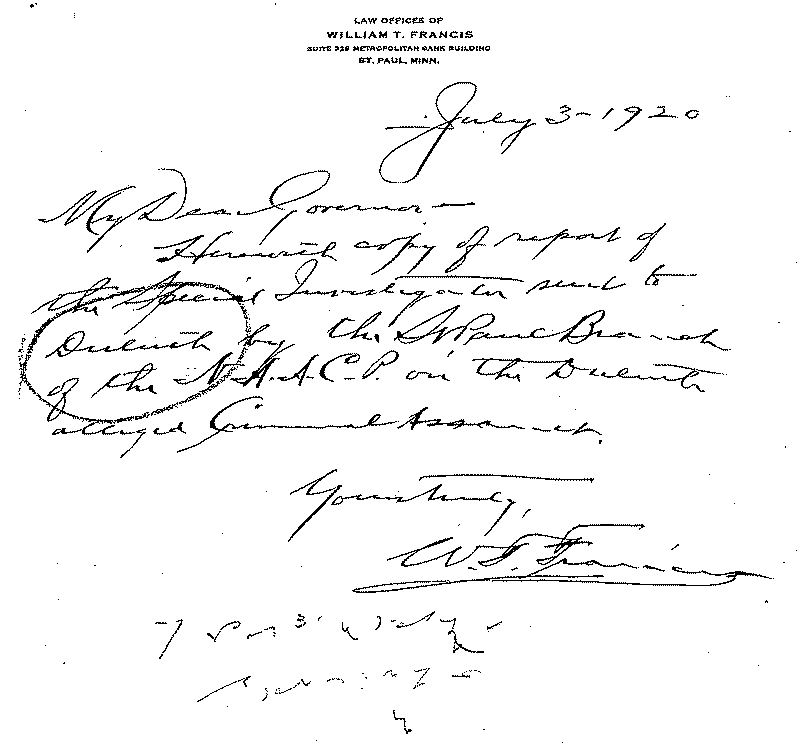 LAW OFFICES OF
WILLIAM T. FRANCIS
SUITE 329 METROPOLITAN BANK BUILDING
ST. PAUL, MINN.
July 3-1920
My Dear Governor—
Herewith copy of report of
the Special Investigator sent to
Duluth by the St Paul Branch
of the N.A.A.C.P. on the Duluth
alleged Criminal Assault.
Yours truly,
W.T. Francis